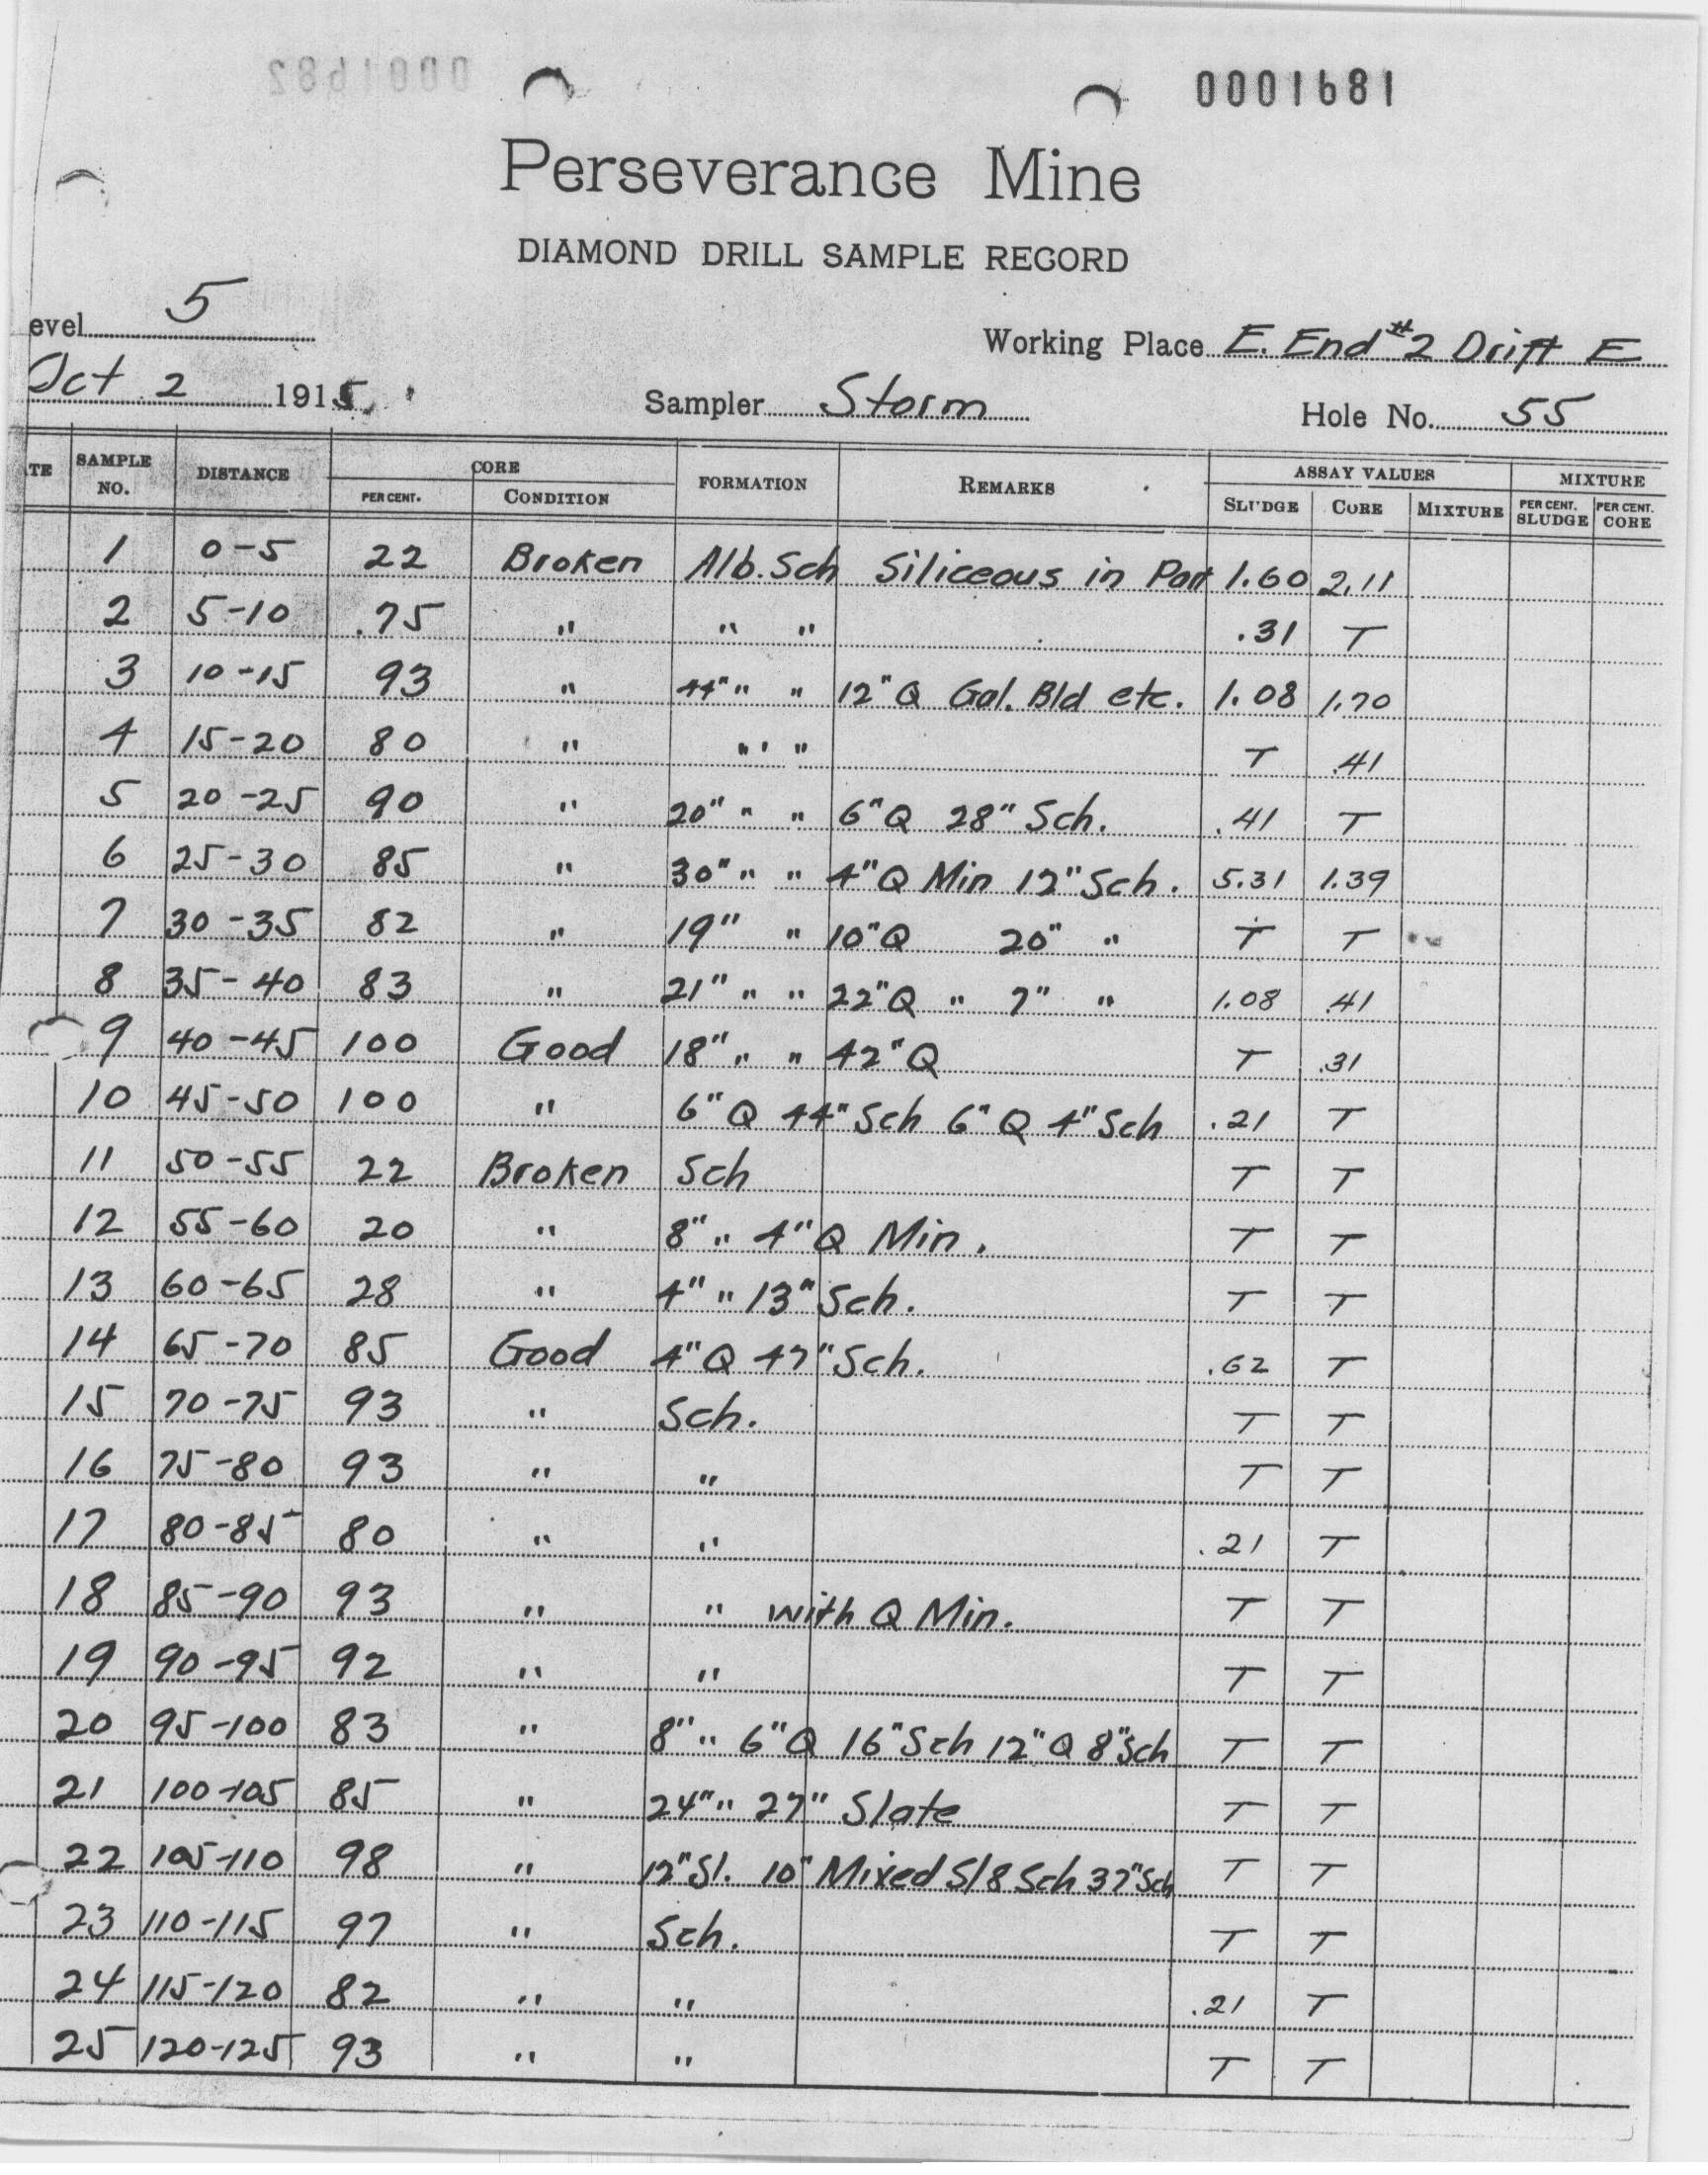 0001682
0001681
Perseverance Mine
DIAMOND DRILL SAMPLE RECORD
evel 5
Working Place E. End #2 Drift E
Oct 2 1915 Sampler Storm Hole No. 55
TE SAMPLE NO. DISTANCE CORE PER CENT. CONDITION FORMATION REMARKS ASSAY VALUES SLUDGE CORE MIXTURE MIXTURE PER CENT. SLUDGE PER CENT. CORE
1 0-5 22 Broken Alb. Sch Siliceous in Part 1.60 2.11
2 5-10 .75 " " " .31 T
3 10-15 93 " 44" " " 12" Q Gal. Bld etc. 1.08 1.70
4 15-20 80 " " " T .41
5 20-25 90 " 20" " " 6" Q 28" Sch. .41 T
6 25-30 85 " 30" " " 4" Q Min 12" Sch. 5.31 1.39
7 30-35 82 " 19" " 10" Q 20" " T T
8 35-40 83 " 21" " " 22" Q " 7" " 1.08 .41
9 40-45 100 Good 18" " " 42" Q T .31
10 45-50 100 " 6" Q 44" Sch 6" Q 4" Sch .21 T
11 50-55 22 Broken Sch T T
12 55-60 20 " 8" " 4" Q Min. T T
13 60-65 28 " 4" " 13" Sch. T T
14 65-70 85 Good 4" Q 47" Sch. .62 T
15 70-75 93 " Sch. T T
16 75-80 93 " " T T
17 80-85 80 " " .21 T
18 85-90 93 " " with Q Min. T T
19 90-95 92 " " T T
20 95-100 83 " 8" " 6" Q 16" Sch 12" Q 8" Sch T T
21 100-105 85 " 24" " 27" Slate T T
22 105-110 98 " 12" Sl. 10" Mixed Sl & Sch 37" Sch T T
23 110-115 97 " Sch. T T
24 115-120 82 " " .21 T
25 120-125 93 " " T T